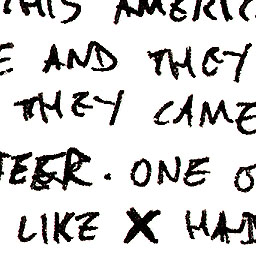 THIS AMERIC
E AND THEY
THEY CAME
TEER. ONE O
LIKE X HAD